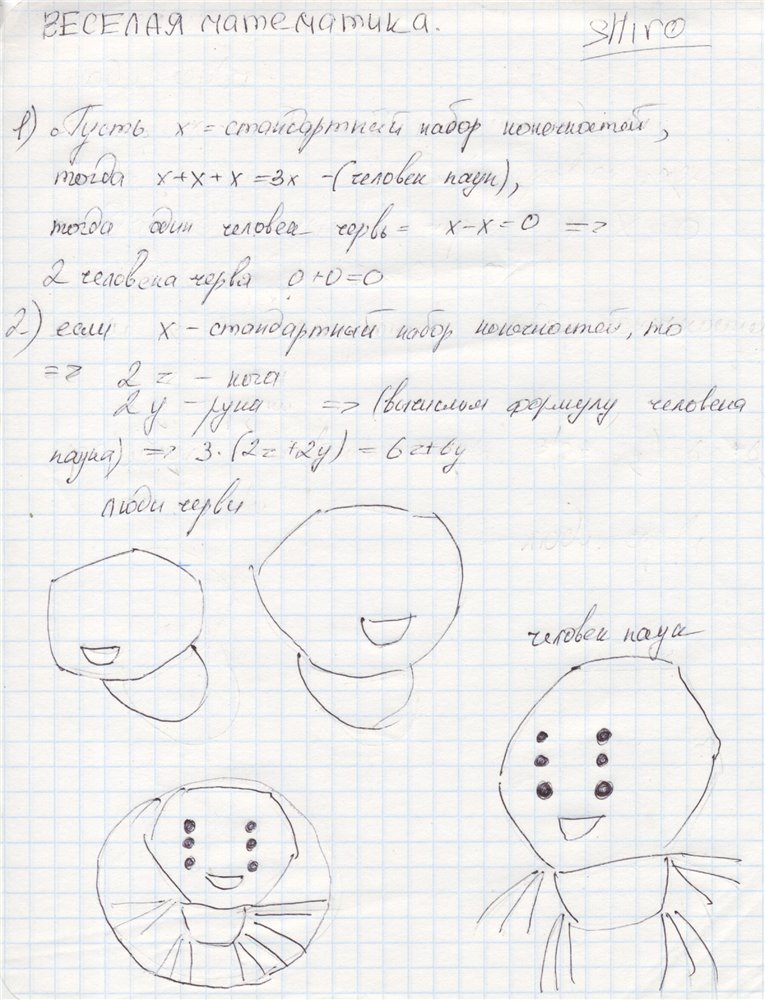 ВЕСЕЛАЯ математика.
SHIRO
1) Пусть x = стандартный набор конечностей,
тогда x+x+x=3x - (человек паук),
тогда один человек червь = x-x=0 =>
2 человека червя 0+0=0
2) если x - стандартный набор конечностей, то
=> 2z - нога
2y - рука => (вычислим формулу человека
паука) => 3·(2z+2y) = 6z+6y
люди черви
человек паук